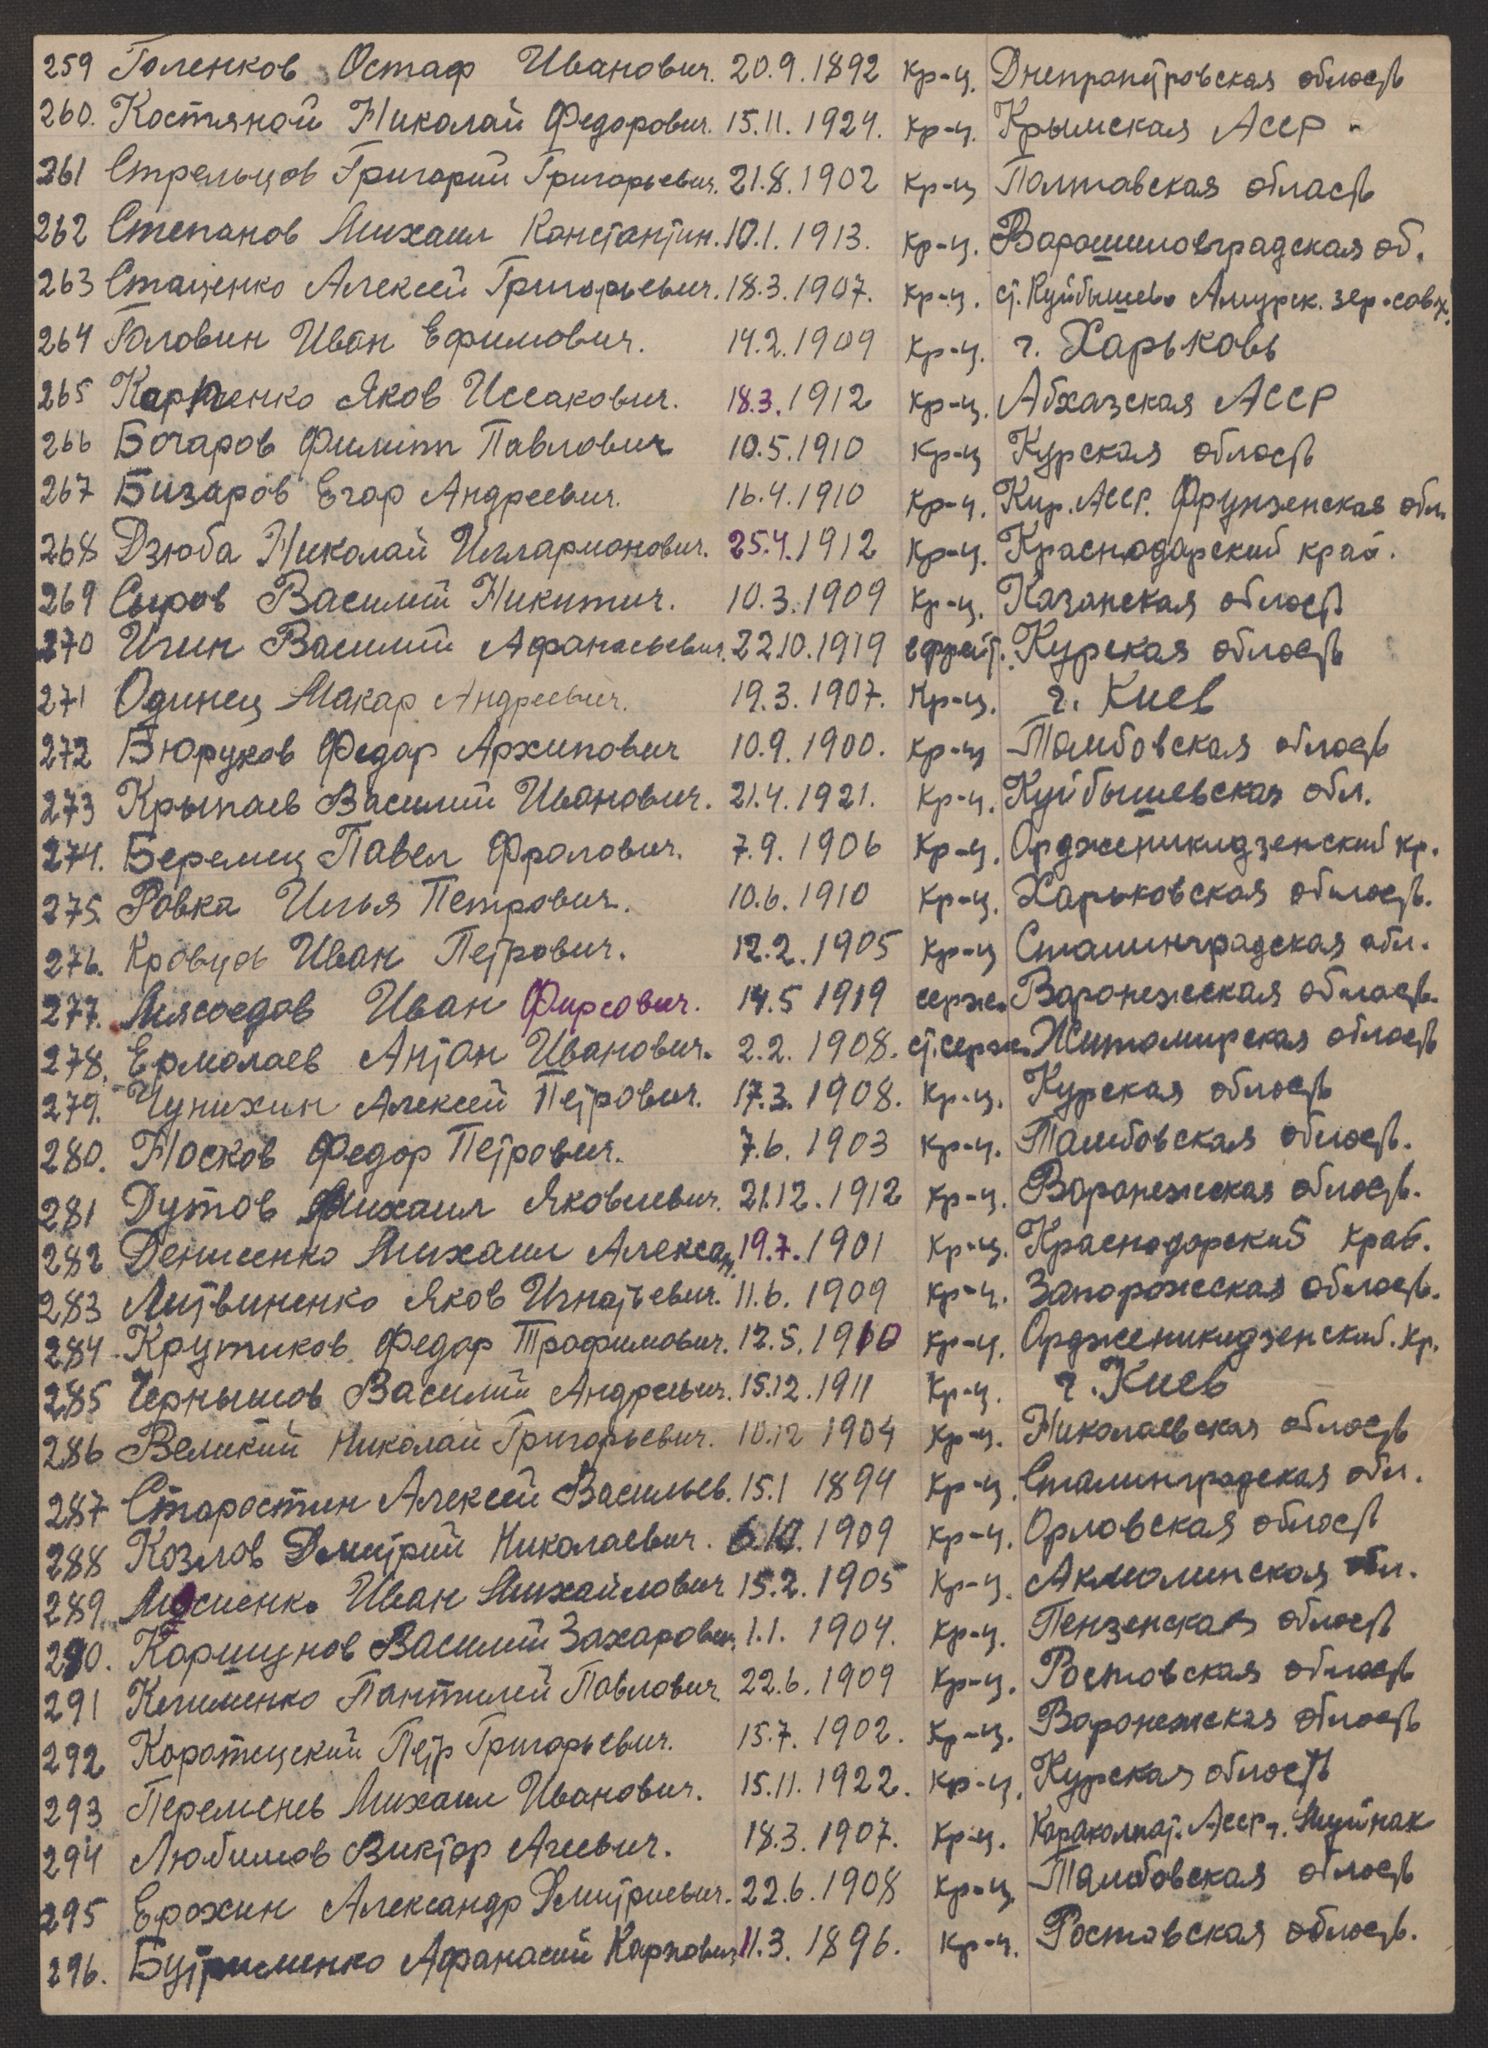 259 Голенков Остаф Иванович. 20.9.1892 кр-ц. Днепропетровская область
260. Костяной Николай Федорович. 15.11.1924. кр-ц. Крымская АССР.
261 Стрельцов Григорий Григорьевич. 21.8.1902 кр-ц Полтавская область
262 Степанов Михаил Константин. 10.1.1913. кр-ц. Ворошиловградская об.
263 Стаценко Алексей Григорьевич. 18.3.1907. кр-ц. ст. Куйбышево Амурск. зер-совх.
264 Головин Иван Ефимович. 14.2.1909 кр-ц. г. Харьковь
265 Карпенко Яков Иссакович. 18.3.1912 кр-ц. Абхазская АССР
266 Бочаров Филипп Павлович 10.5.1910 кр-ц Курская область
267 Бизаров Егор Андреевич. 16.4.1910 кр-ц. Кир. АССР. Фрунзенская обл.
268 Дзюба Николай Илларионович. 25.4.1912 кр-ц. Краснодарский край.
269 Сыров Василий Никитич. 10.3.1909 кр-ц. Казанская область
270 Игин Василий Афанасьевич. 22.10.1919 ефрейт. Курская область
271 Одинец Макар Андреевич. 19.3.1907. кр-ц. г. Киев
272 Бюруков Федор Архипович 10.9.1900. кр-ц Тамбовская область
273 Крыпаев Василий Иванович. 21.4.1921. кр-ц. Куйбышевская обл.
274. Беремец Павел Фролович. 7.9.1906 кр-ц. Ордженикидзенский кр.
275. Ровка Илья Петрович. 10.6.1910 кр-ц. Харьковская область.
276. Кровцов Иван Петрович. 12.2.1905 кр-ц Сталинградская обл.
277. Мясоедов Иван Фирсович. 14.5 1919 серж. Воронежская область.
278. Ермолаев Антон Иванович. 2.2.1908. ст.серж. Житомирская область
279. Чунихин Алексей Петрович. 17.3.1908. кр-ц. Курская область
280. Носков Федор Петрович. 7.6.1903 кр-ц. Тамбовская область.
281 Дутов Михаил Яковлевич. 21.12.1912 кр-ц. Воронежская область.
282 Денисенко Михаил Алексан. 19.7.1901 кр-ц. Краснодарский край.
283 Литвиненко Яков Игнатьевич. 11.6.1909 кр-ц. Запорожская область.
284 Крутиков Федор Трофимович. 12.5.1910 кр-ц. Ордженикидзенский. кр.
285 Чернышов Василий Андреевич. 15.12.1911 кр-ц. г. Киев
286 Великий Николай Григорьевич. 10.12 1904 кр-ц. Николаевская область
287 Старостин Алексей Васильев. 15.1 1894 кр-ц. Сталинградская обл.
288 Козлов Дмитрий Николаевич. 6.10.1909 кр-ц. Орловская область
289. Мосиенко Иван Михайлович 15.2.1905 кр-ц. Акмолинская обл.
290. Коршунов Василий Захарович 1.1.1904. кр-ц. Пензенская область
291 Клименко Пантилей Павлович 22.6.1909 кр-ц. Ростовская область
292 Коротецкий Петр Григорьевич. 15.7.1902. кр-ц. Воронежская область
293 Переменев Михаил Иванович. 15.11.1922. кр-ц. Курская область
294 Любимов Виктор Агеевич. 18.3.1907. кр-ц. Караколпат. АССР г. Муйнак
295 Ерохин Александр Дмитриевич. 22.6.1908 кр-ц. Тамбовская область
296. Бутрименко Афанасий Карпович 11.3.1896. кр-ц. Ростовская область.